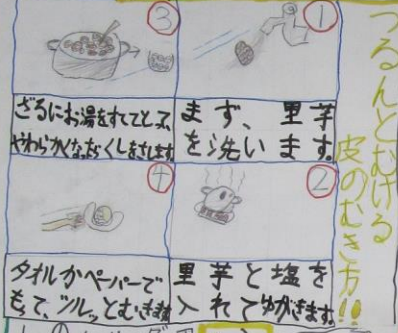 つるんとむける
皮のむき方!!
①
まず、里芋
を洗います。
②
里芋と塩を
入れてゆがきます。
③
ざるにお湯をすててとって、
やわらかくなったらくしをさします。
④
タオルかペーパーで
もって、ツルッとむきます